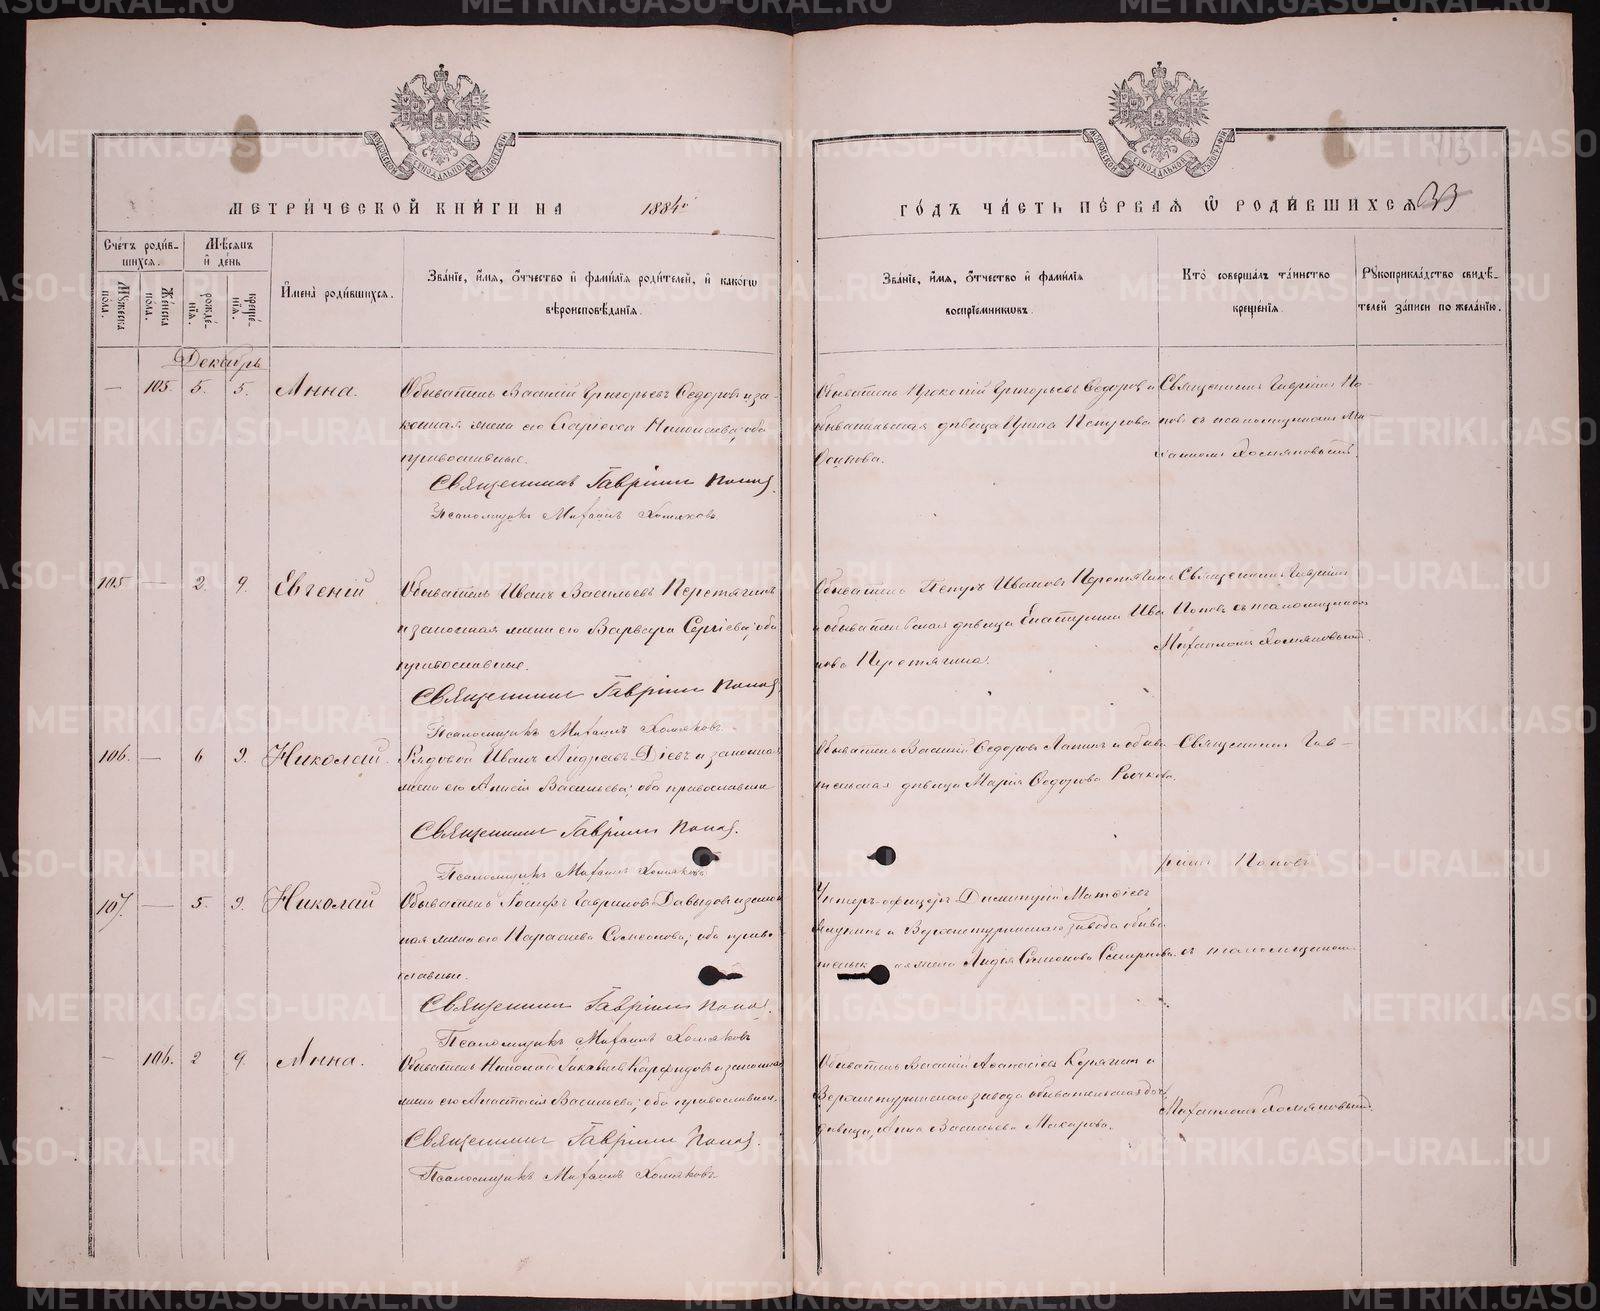 МЕТРИ́ЧЕСКОЙ КНИ́ГИ НА 1884й
ГО́ДЪ ЧА́СТЬ ПЕ́РВАЯ Ѡ РОДИ́ВШИХСЯ
33
Сче́тъ роди́в-
шихся.
Мѣ́сяцъ
и҆ де́нь
Му́жеска
по́ла.
Же́нска
по́ла.
рожде́-
нїя.
креще́-
нїя.
И҆мена̀ роди́вшихся.
Зва́нїе, и҆́мя, ѻ҆́тчество и҆ фами́лїя роди́телей, и҆ како́гѡ
вѣроисповѣ́данїя.
Зва́нїе, и҆́мя, ѻ҆́тчество и҆ фами́лїя
воспрїе́мникѡвъ.
Кто̀ соверша́лъ та́инство
креще́нїя.
Рꙋкоприкла́дство свидѣ́-
телей за́писи по жела́нїю.
Декабрь
— 105. 5. 5. Анна.
Обыватель Василій Григорьевъ Ѳедоровъ и за-
конная жена его Николаева; оба
православные.
Священникъ Гавріилъ Поповъ.
Псаломщикъ Михаилъ Хомяковъ.
Обыватель Прокопій Григорьевъ Ѳедоровъ и
обывательская дѣвица Ирина Петрова
Осипова.
Священникъ Гавріилъ По-
повъ съ псаломщикомъ Ми-
хаиломъ Хомяковымъ.
105 — 2 9. Евгеній
Обыватель Иванъ Васильевъ Перетягинъ
и законная жена его Варвара Сергіева; оба
православные.
Священникъ Гавріилъ Поповъ.
Псаломщикъ Михаилъ Хомяковъ.
Обыватель Петръ Ивановъ Перетягинъ
и обывательская дѣвица Екатерина Ива
нова Перетягина.
Священникъ Гавріилъ
Поповъ съ псаломщикомъ
Михаиломъ Хомяковымъ.
106. — 6 9. Николай.
Рядовой Иванъ Андреевъ Діевъ и законная
жена его Анисія Васильева; оба православные
Священникъ Гавріилъ Поповъ.
Псаломщикъ Михаилъ Хомяковъ
Обыватель Василій Ѳедоровъ Лапинъ и обыва
тельская дѣвица Марія Ѳедорова Рычкова.
Священникъ Гав-
ріилъ Поповъ
107. — 5. 9. Николай
Обыватель Іосифъ Гавриловъ Давыдовъ и закон
ная жена его Параскева Симеонова; оба право-
славные.
Священникъ Гавріилъ Поповъ.
Псаломщикъ Михаилъ Хомяковъ
Унтеръ-офицеръ Димитрій Матвѣевъ
и Верхнетуринскаго завода обыва
жена Лидія Симонова Смирнова.
съ псаломщикомъ
— 106. 2 9. Анна.
Обыватель Николай и законная
жена его Анастасія Васильева; оба православные.
Священникъ Гавріилъ Поповъ.
Псаломщикъ Михаилъ Хомяковъ
Обыватель Василій Аѳанасіевъ и
Верхнетуринскаго завода обывательская дочь
дѣвица, Анна Васильева Макарова.
Михаиломъ Хомяковымъ.
METRIKI.GASO-URAL.RU